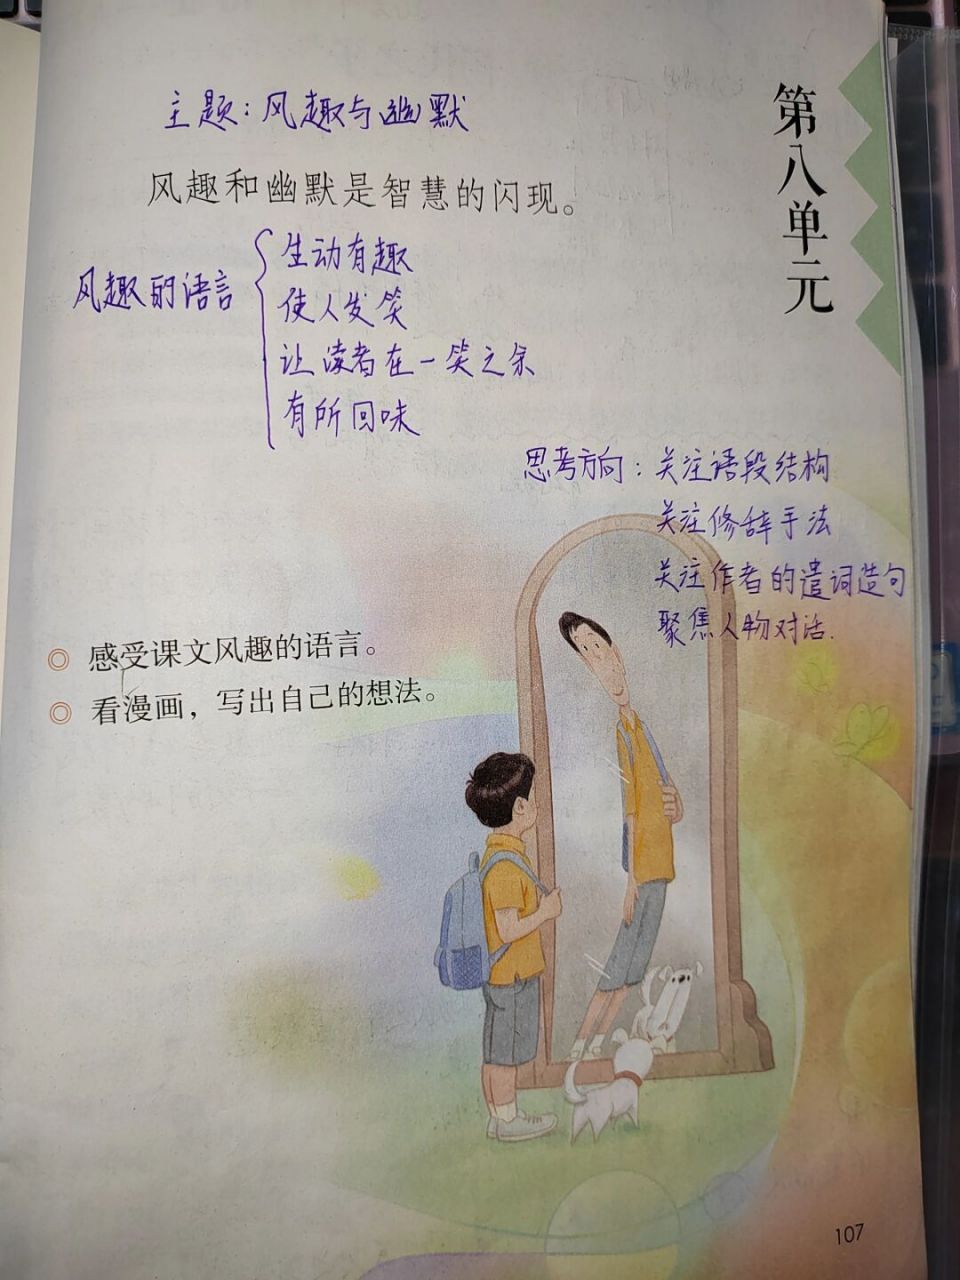 主题：风趣与幽默
第八单元
风趣和幽默是智慧的闪现。
风趣的语言
生动有趣
使人发笑
让读者在一笑之余
有所回味
思考方向：关注语段结构
关注修辞手法
关注作者的遣词造句
聚焦人物对话.
◎ 感受课文风趣的语言。
◎ 看漫画，写出自己的想法。
107